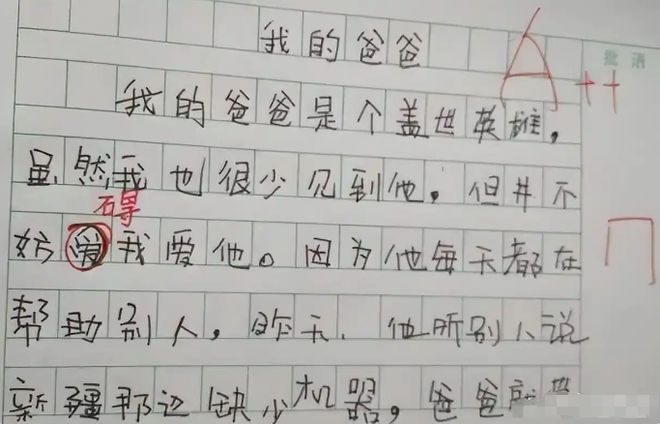 我的爸爸
A++
批语
我的爸爸是个盖世英雄,
虽然我也很少见到他。但并不
碍
妨爱我爱他。因为他每天都在
帮助别人,昨天,他听别人说
新疆那边缺少机器,爸爸就带